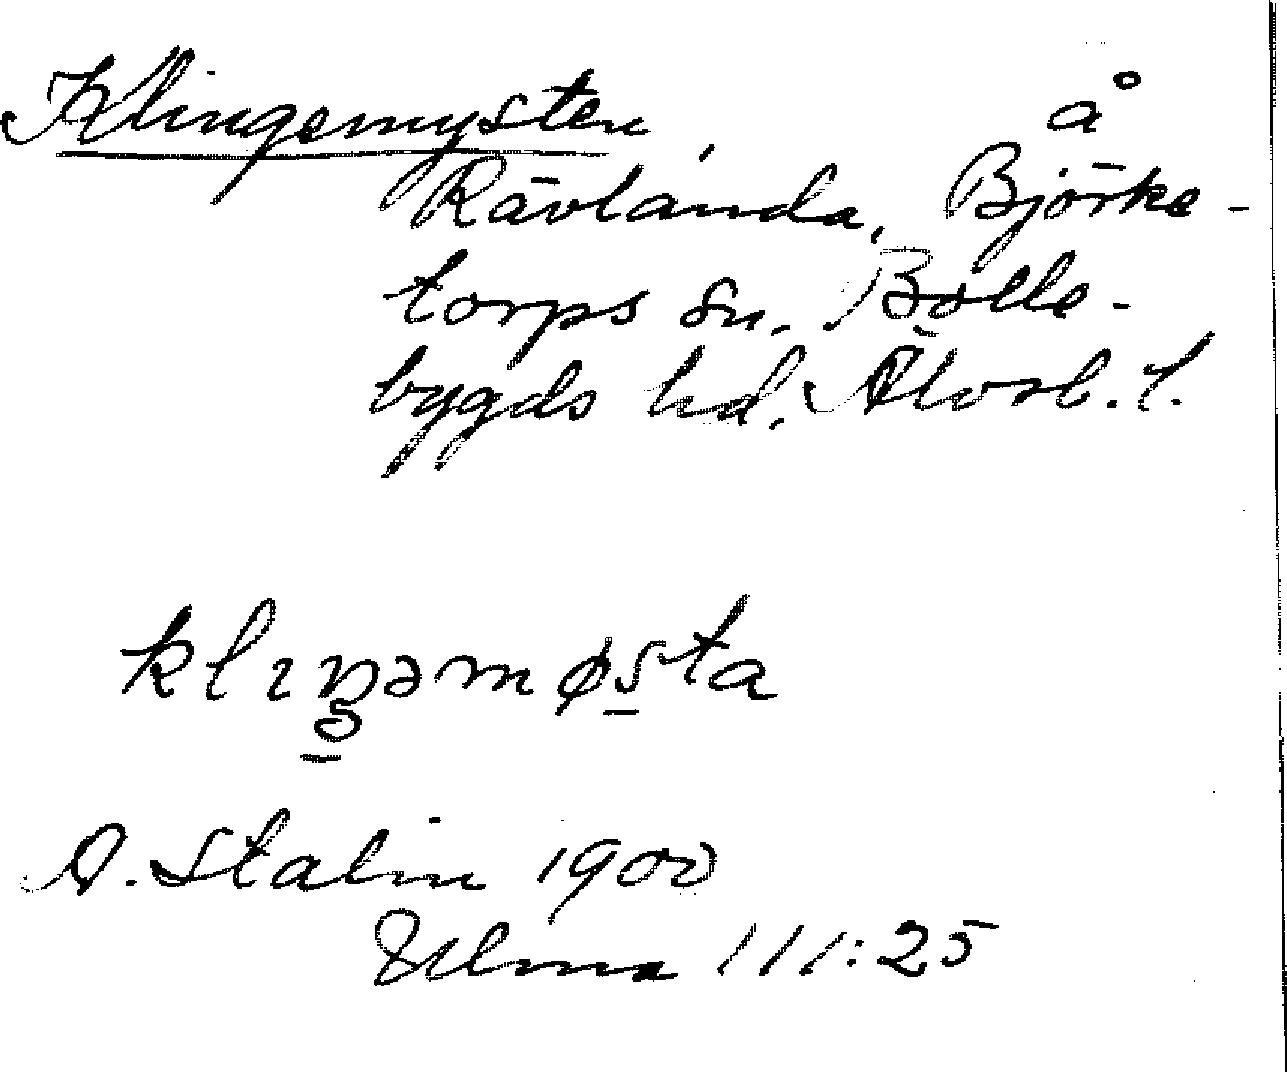 Klingemysten, å
Rävlanda, Björke-
torps sn. Bolle-
bygds hd. Älvsb. l.
klıŋəmøsta
A. Stalin 1900
Ulma 111:25